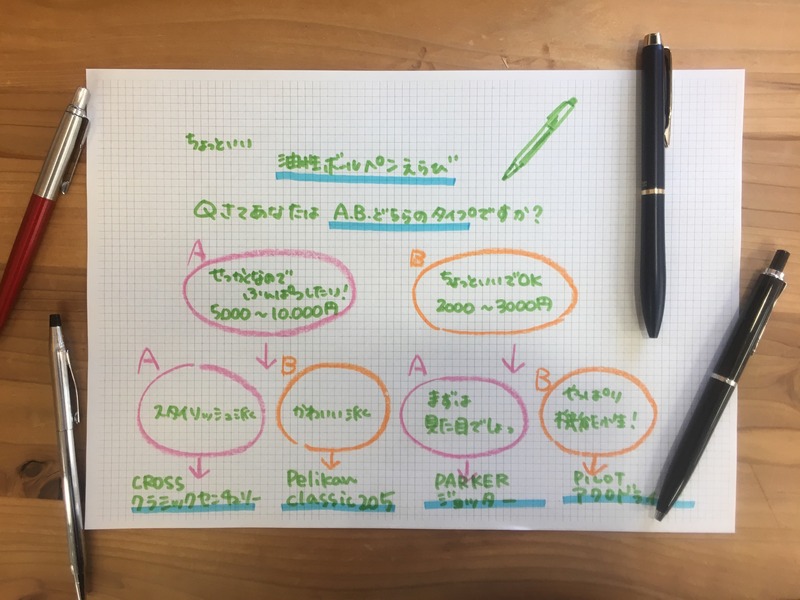 ちょっといい
油性ボールペンえらび
Qさてあなたは A.B.どちらのタイプですか?
A
せっかくなので
ふんぱつしたい!
5000〜10.000円
B
ちょっといいでOK
2000〜3000円
A
スタイリッシュ派
B
かわいい派
A
まずは
見た目でしょっ
B
やっぱり
機能性!
CROSS
クラシックセンチュリー
Pelikan
classic205
PARKER
ジョッター
PiLOT
アクロドライ